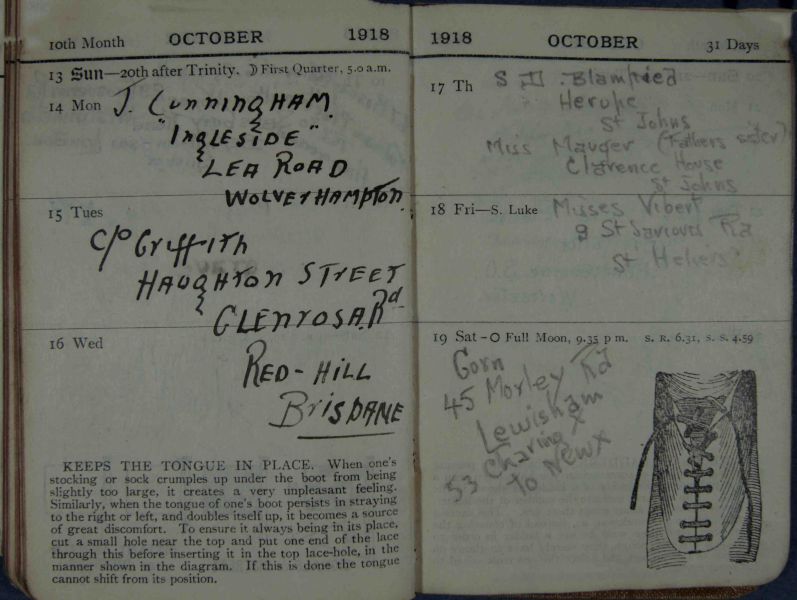 10th Month OCTOBER 1918
13 Sun—20th after Trinity. ☽ First Quarter, 5.0 a.m.
14 Mon J. CunningHAM.
"IngLESiDE"
LEA ROAD
WOLVERHAMPTON.
15 Tues
C/o Griffith
HAUGHTON STrEET
GLENrOSA.Rd
16 Wed
RED-HiLL
BrisBANE
KEEPS THE TONGUE IN PLACE. When one's
stocking or sock crumples up under the boot from being
slightly too large, it creates a very unpleasant feeling.
Similarly, when the tongue of one's boot persists in straying
to the right or left, and doubles itself up, it becomes a source
of great discomfort. To ensure it always being in its place,
cut a small hole near the top and put one end of the lace
through this before inserting it in the top lace-hole, in the
manner shown in the diagram. If this is done the tongue
cannot shift from its position.
1918 OCTOBER 31 Days
17 Th S Blampied
Herupe
St Johns
Miss Mauger (Fathers sister)
Clarence House
St Johns
18 Fri—S. Luke Misses Vibert
9 St Saviours Rd
St Heliers
19 Sat - O Full Moon, 9.35 p m. S. R. 6.31, S. S. 4.59
Gorn
45 Morley Rd
Lewisham
53 Charing X
to New X